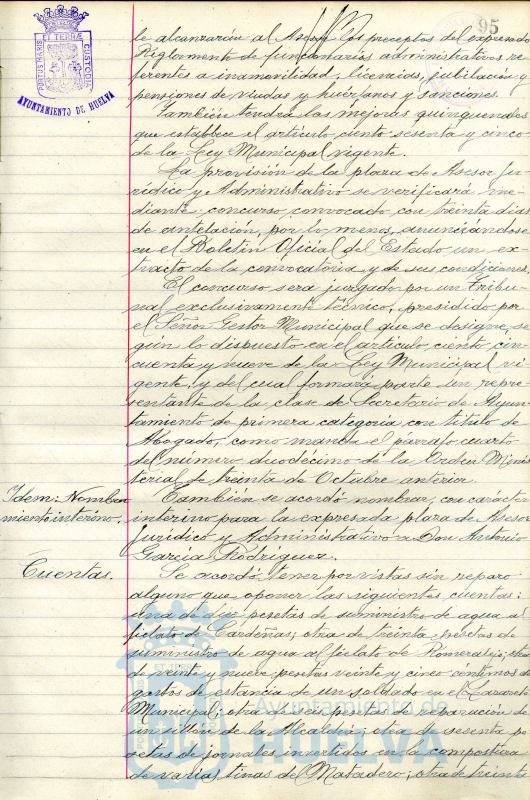 95
PORTUS MARIS ET TERRÆ CUSTODIA
AYUNTAMIENTO DE HUELVA
le alcanzarán al Asesor los preceptos del expresado
Reglamento de funcionarios administrativos re
ferentes a inamovilidad, licencias, jubilación y
pensiones de viudas y huérfanos y sanciones.
También tendrá las mejoras quinquenales
que establece el artículo ciento sesenta y cinco
de la Ley Municipal vigente.
La provisión de la plaza de Asesor Ju
rídico y Administrativo se verificará me
diante concurso convocado con treinta dias
de antelación, por lo menos, anunciándose
en el Boletín Oficial del Estado un ex
tracto de la convocatoria y de sus condiciones.
El concurso será juzgado por un Tribu
nal exclusivamente técnico, presidido por
el Señor Gestor Municipal que se designe, se
gún lo dispuesto en el artículo ciento cin
cuenta y nueve de la Ley Municipal vi
gente, y del cual formará parte un repre
sentante de la clase de Secretario de Ayun
tamiento de primera categoría con título de
Abogado, como manda el párrafo cuarto
del número duodécimo de la Orden Minis
terial de treinta de Octubre anterior.
Idem: Nombra
miento interino.
También se acordó nombrar, con carácter
interino para la expresada plaza de Asesor
Jurídico y Administrativo a Don Antonio
García Rodríguez.
Cuentas.
Se acordó tener por vistas sin reparo
alguno que oponer las siguientes cuentas:
una de diez pesetas de suministro de agua al
fielato de Cardeñas; otra de treinta pesetas de
suministro de agua al fielato de Romeralejo; otra
de veinte y nueve pesetas veinte y cinco céntimos de
gastos de estancia de un soldado en el
Municipal; otra de seis pesetas de reparación de
un sillón de la Alcaldía; otra de sesenta pe
setas de jornales invertidos en la compostura
de varias tinas del Matadero; otra de treinta
Ayuntamiento de
HUELVA